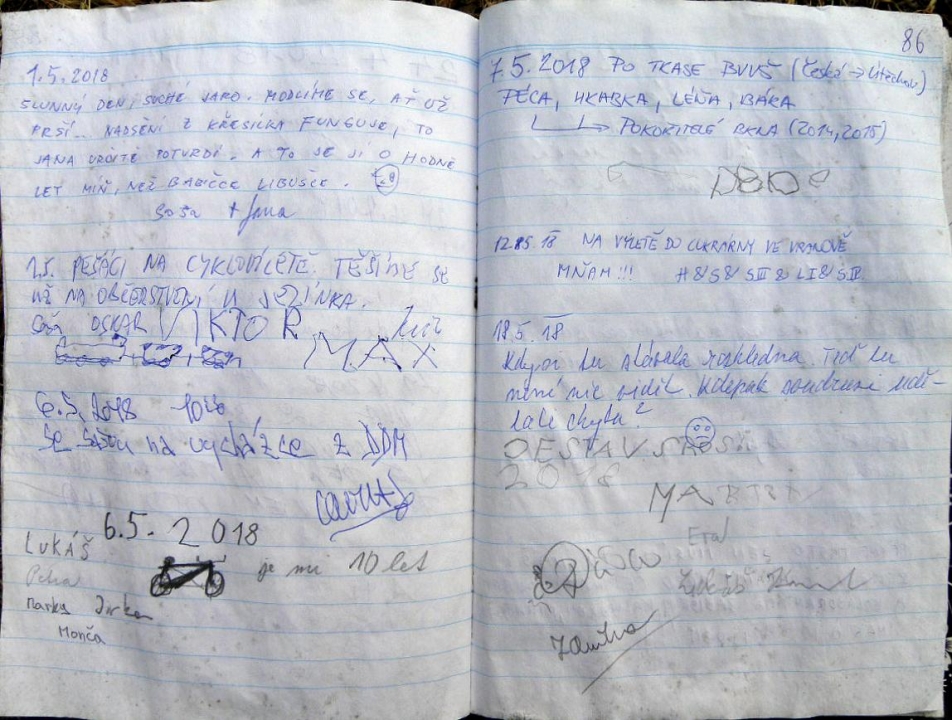 1.5.2018
SLUNNÝ DEN, SUCHÉ JARO. MODLÍME SE, AŤ UŽ
PRŠÍ... NADŠENÍ Z KŘESÍLKA FUNGUJE, TO
JANA URČITĚ POTVRDÍ. A TO JE JÍ O HODNĚ
LET MÍŇ, NEŽ BABIČCE LIBUŠCE.
+ Jana
1.5. PEŠÁCI NA CYKLOVÝLETĚ. TĚŠÍME SE
UŽ NA OBČERSTVENÍ U
OSKAR VIKTOR
MAX
6.5.2018
na vycházce z DDM
6.5.2018
LUKÁŠ
je mi 10 let
Petra
Jirka
Monča
86
7.5.2018 PO TRASE BVVŠ (Česká → Litechov)
PÉČA, HRABKA, LÉŇA, BÁRA
POKOŘITELÉ BRNA (2014, 2015)
12.05.18 NA VÝLETĚ DO CUKRÁRNY VE VRANOVĚ
MŇAM!!! H&S&SIII&LI&SIV
18.5.18
Kdysi tu stávala rozhledna. Teď tu
není nic vidět. Kdepak soudruzi udě-
lali chybu?
2018
MARTIN